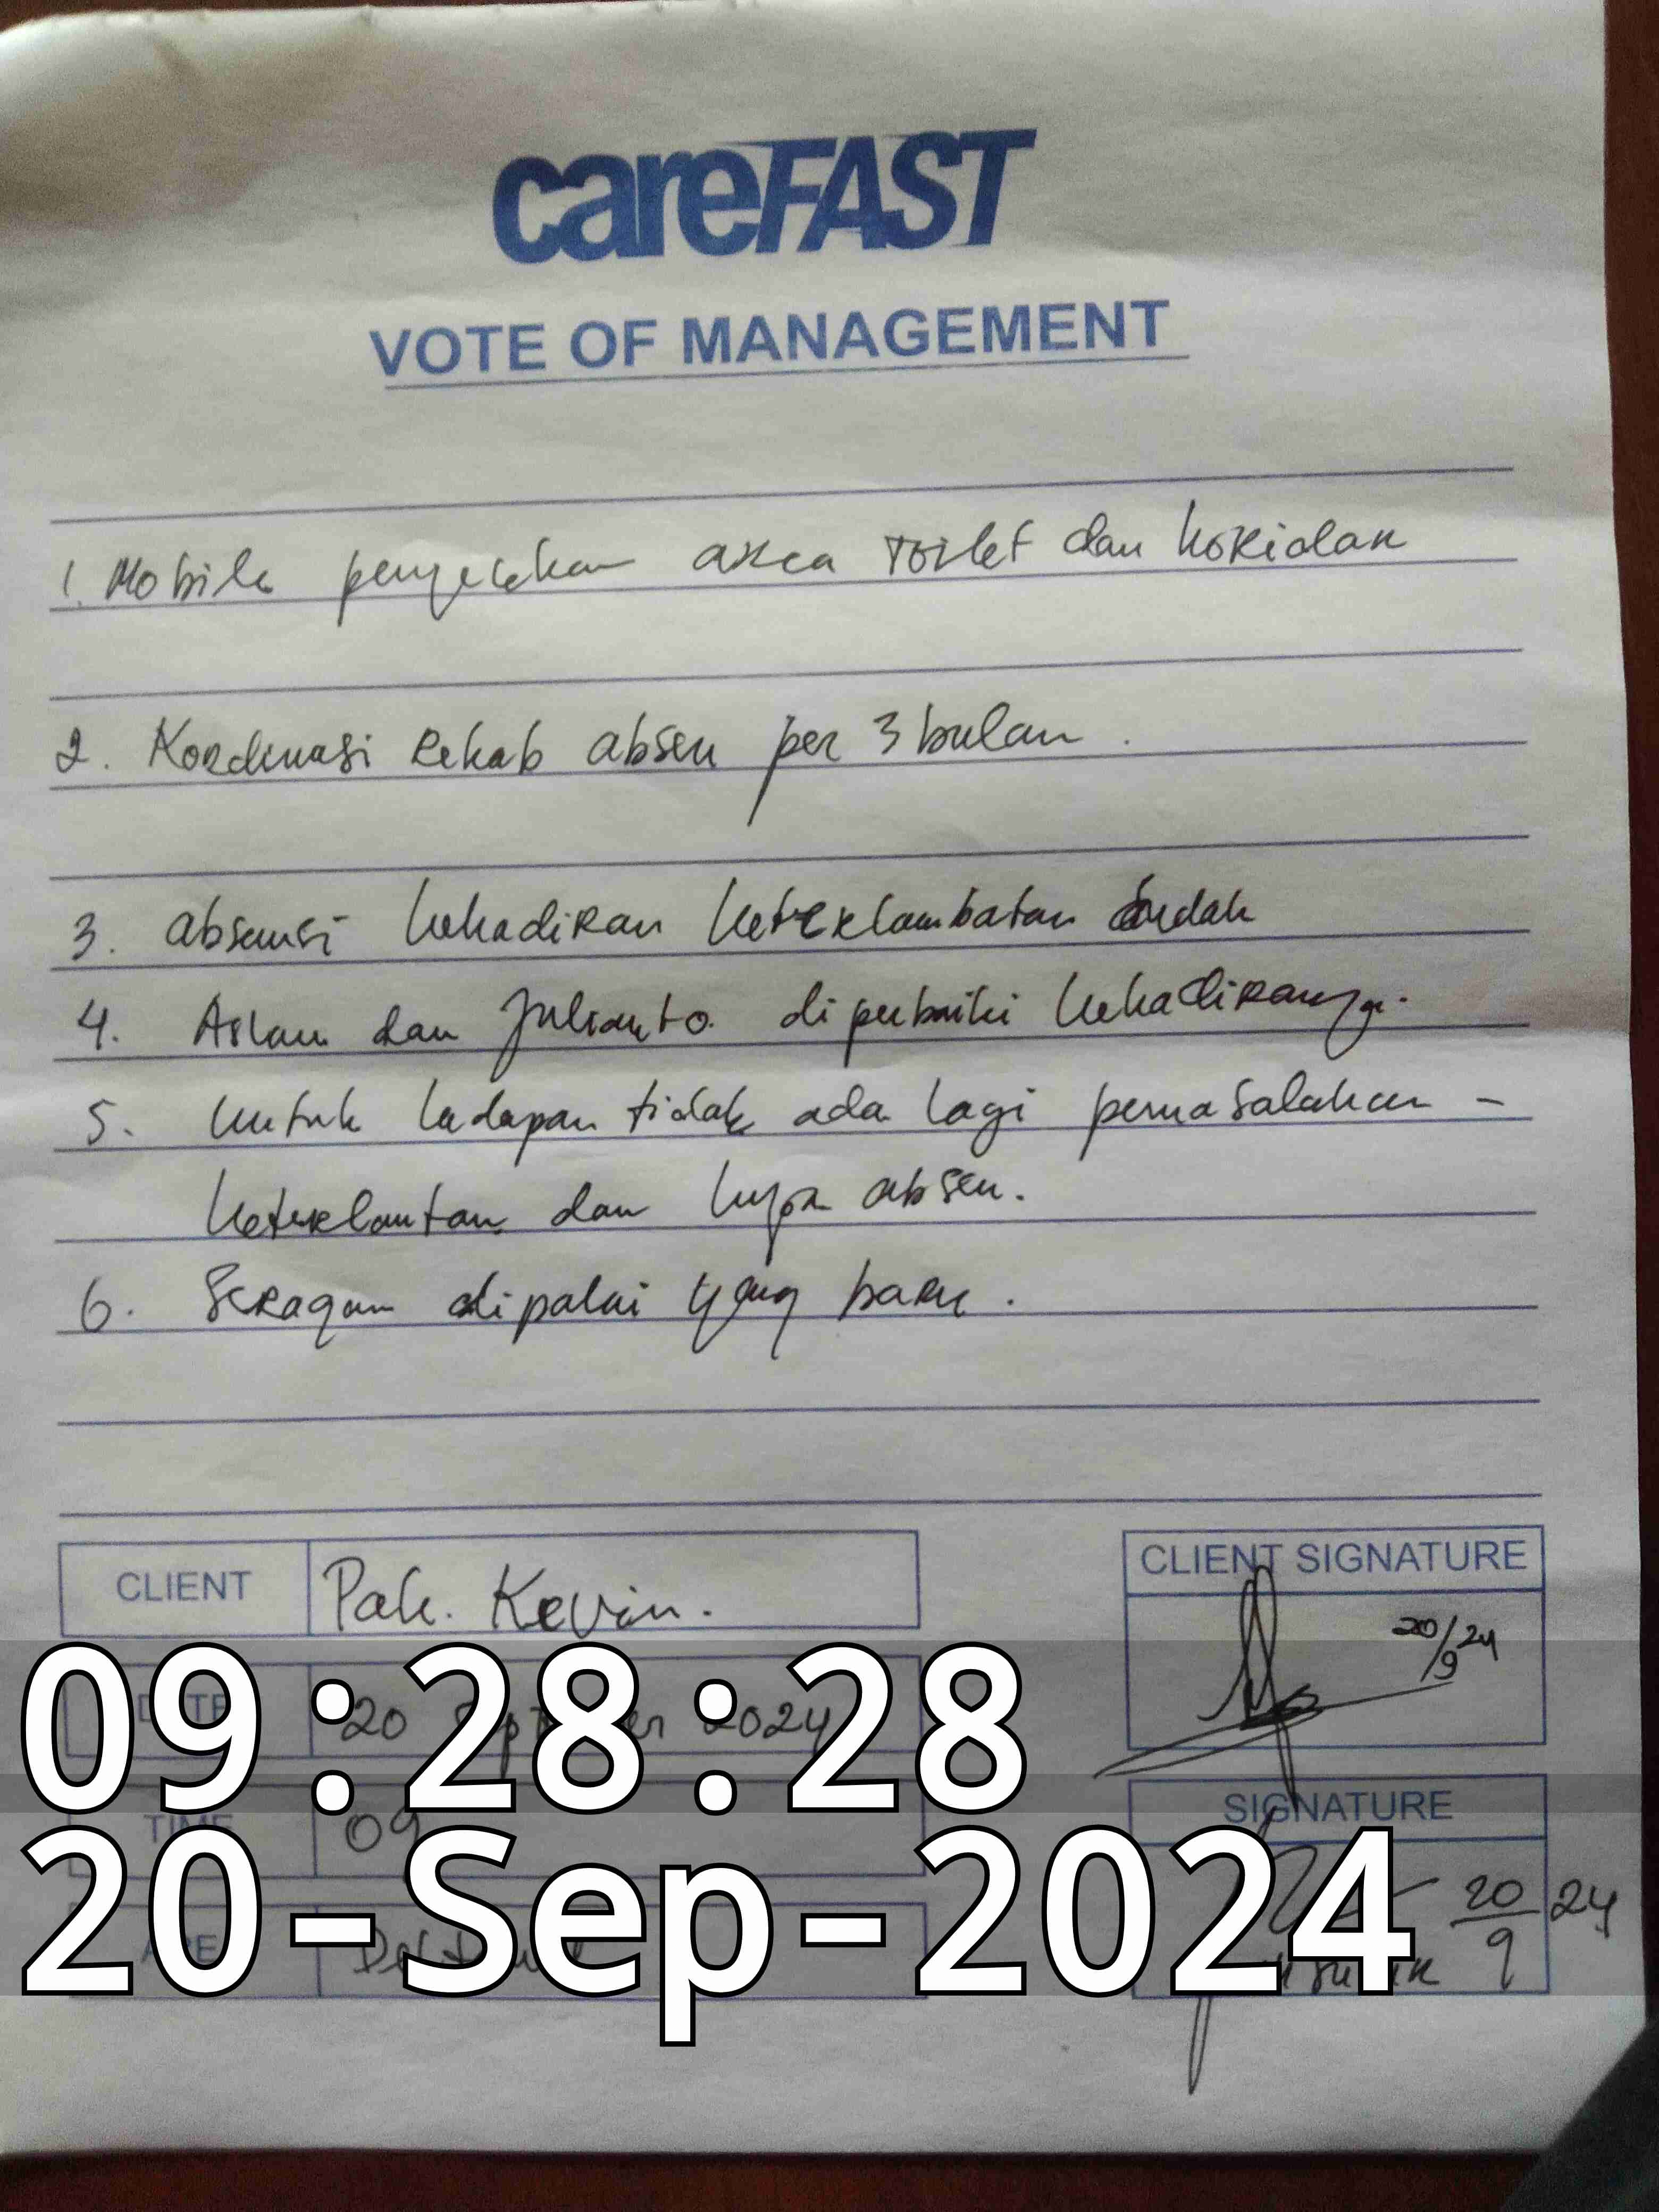 careFAST
VOTE OF MANAGEMENT
1. Mobile pengecekan area toilet dan koridlan
2. Kordinasi Rekab absen per 3 bulan.
3. absensi kehadiran keterlambatan
4. Aslan dan Julianto diperbaiki kehadirannya.
5. untuk kedapan tidak ada lagi permasalahan -
keterlamtan dan lupa absen.
6. Seragam dipakai yang baru.
CLIENT
Pak. Kevin.
CLIENT SIGNATURE
20/9 24
DATE
20 September 2024
TIME
09
SIGNATURE
20/9 24
09:28:28
20-Sep-2024